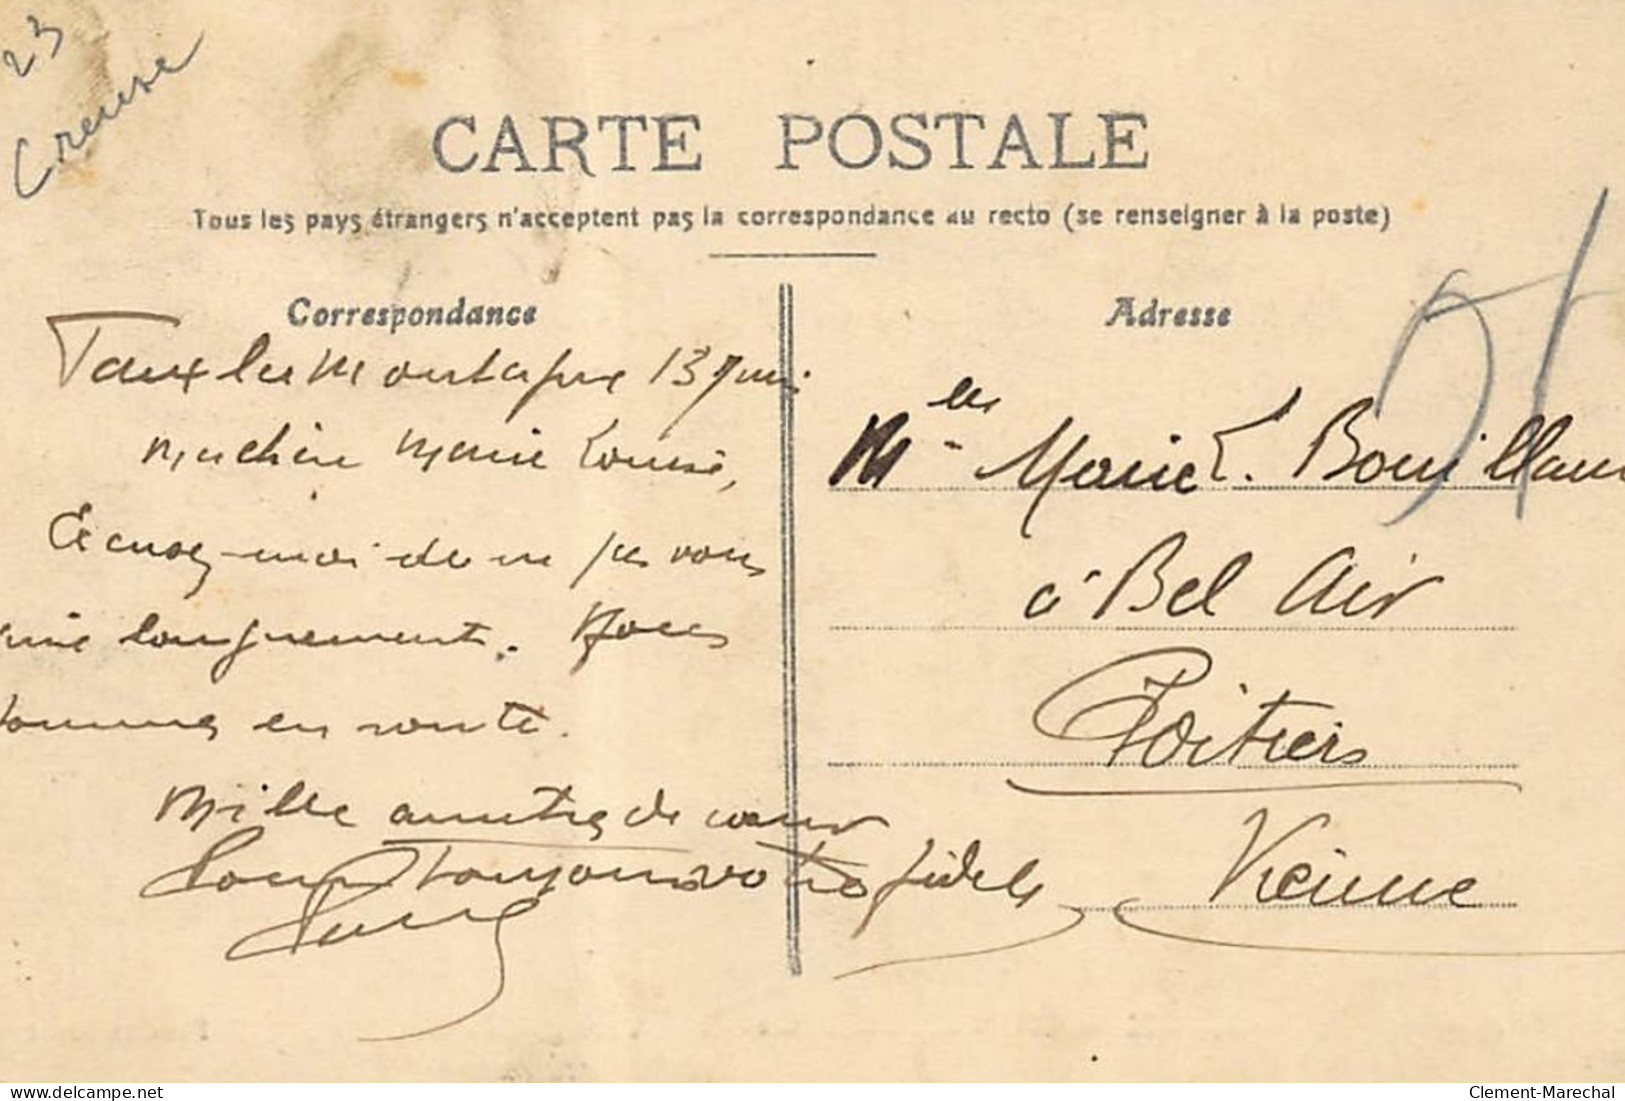 23
Creuse
CARTE POSTALE
Tous les pays étrangers n'acceptent pas la correspondance au recto (se renseigner à la poste)
Correspondance
Adresse
13 Juin
Ma chère Marie Louise,
Excusez-moi de ne pas vous
longuement. Nous
sommes en route.
Mille amitiés de
toujours votre fidèle
Melle Marie L. Bouillau
à Bel Air
Poitiers
Vienne
delcampe.net
Clement-Marechal